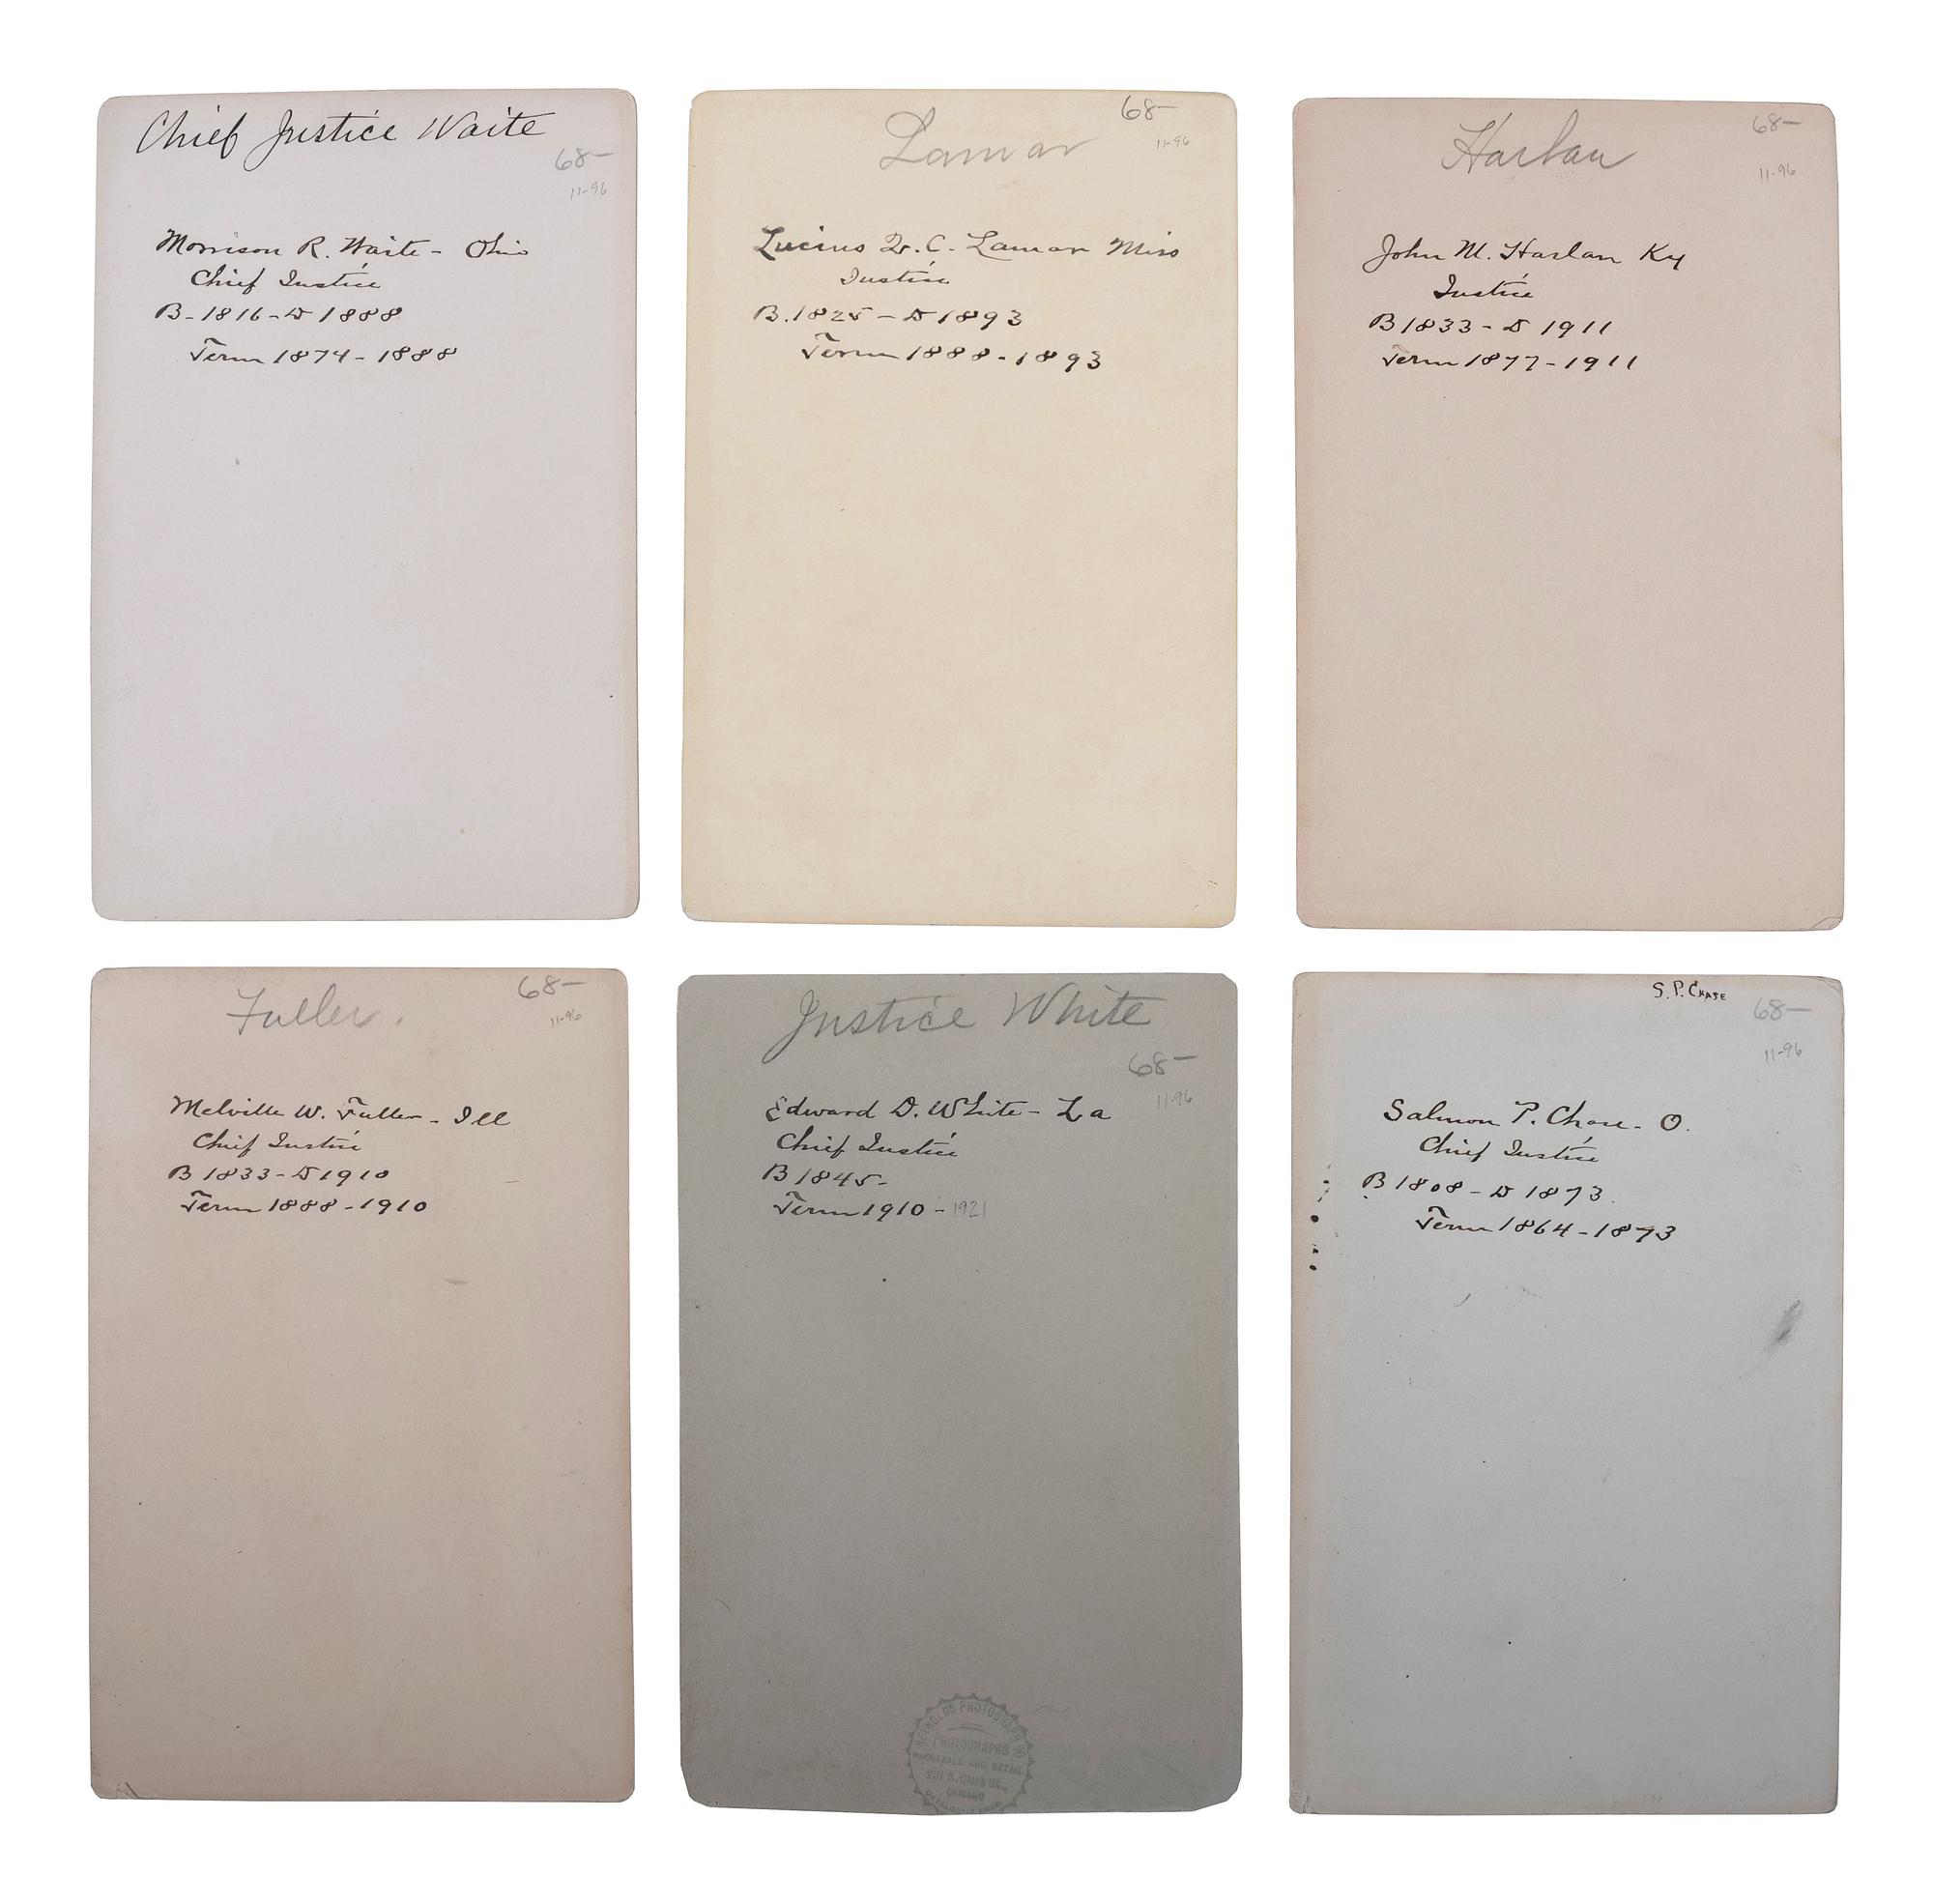 Chief Justice Waite
68-
11-96
Morrison R. Waite - Ohio
Chief Justice
B - 1816 - D 1888
Term 1874 - 1888
Lamar
68-
11-96
Lucius Q. C. Lamar Miss
Justice
B. 1825 - D 1893
Term 1888 - 1893
Harlan
68-
11-96
John M. Harlan Ky
Justice
B 1833 - D 1911
Term 1877 - 1911
Fuller.
68-
11-96
Melville W. Fuller - Ill
Chief Justice
B 1833 - D 1910
Term 1888 - 1910
Justice White
68-
11-96
Edward D. White - La
Chief Justice
B 1845 -
Term 1910 - 1921
REYNOLDS PHOTOGRAPH CO
PHOTOGRAPHS
WHOLESALE AND RETAIL
201 S. Clark St.,
CHICAGO
S. P. CHASE
68-
11-96
Salmon P. Chase - O.
Chief Justice
B 1808 - D 1873.
Term 1864 - 1873